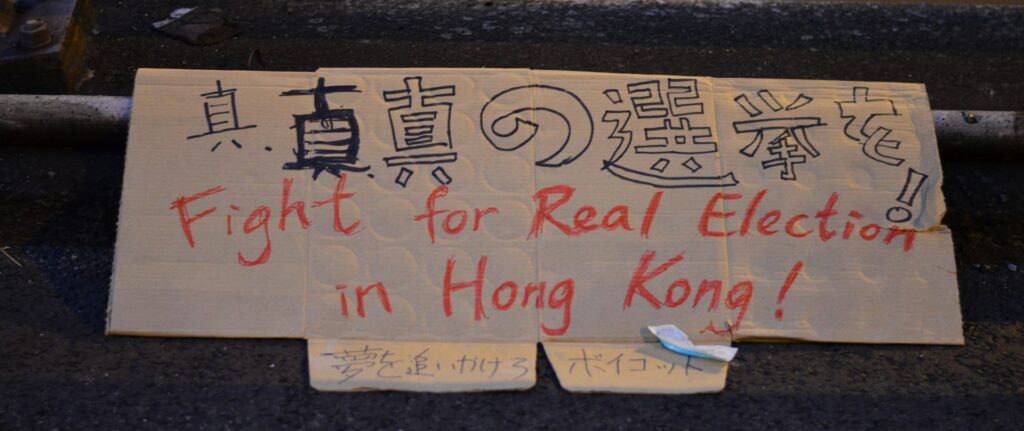 真真真の選挙を!
Fight for Real Election
in Hong Kong!
夢を追いかけろ ボイコット